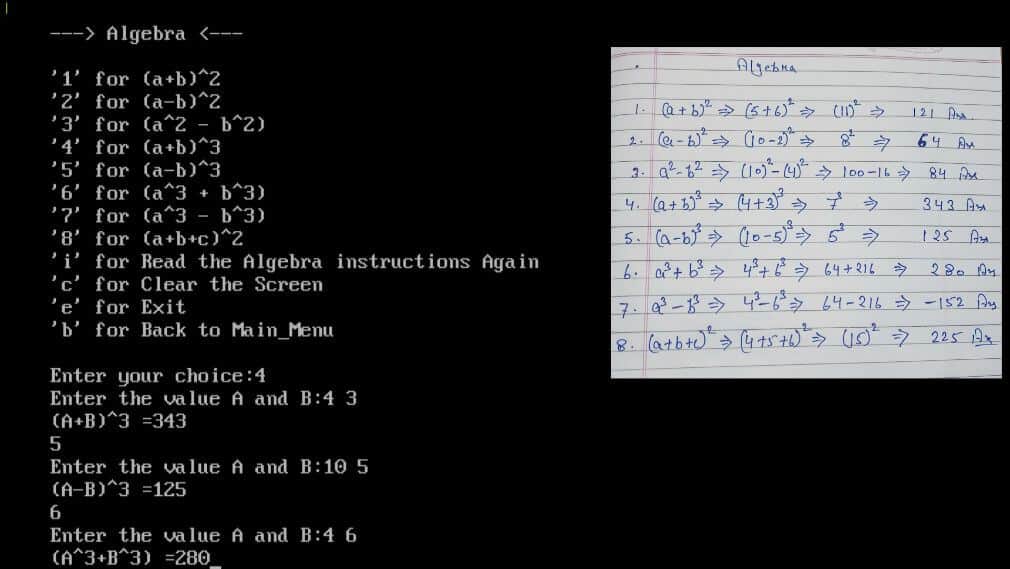 ---> Algebra <---
'1' for (a+b)^2
'2' for (a-b)^2
'3' for (a^2 - b^2)
'4' for (a+b)^3
'5' for (a-b)^3
'6' for (a^3 + b^3)
'7' for (a^3 - b^3)
'8' for (a+b+c)^2
'i' for Read the Algebra instructions Again
'c' for Clear the Screen
'e' for Exit
'b' for Back to Main_Menu
Enter your choice:4
Enter the value A and B:4 3
(A+B)^3 =343
5
Enter the value A and B:10 5
(A-B)^3 =125
6
Enter the value A and B:4 6
(A^3+B^3) =280_
Algebra
1. (a+b)² ⇒ (5+6)² ⇒ (11)² ⇒ 121 Ans
2. (a-b)² ⇒ (10-2)² ⇒ 8² ⇒ 64 Ans
3. a²-b² ⇒ (10)²-(4)² ⇒ 100-16 ⇒ 84 Ans
4. (a+b)³ ⇒ (4+3)³ ⇒ 7³ ⇒ 343 Ans
5. (a-b)³ ⇒ (10-5)³ ⇒ 5³ ⇒ 125 Ans
6. a³+b³ ⇒ 4³+6³ ⇒ 64+216 ⇒ 280 Ans
7. a³-b³ ⇒ 4³-6³ ⇒ 64-216 ⇒ -152 Ans
8. (a+b+c)² ⇒ (4+5+6)² ⇒ (15)² ⇒ 225 Ans